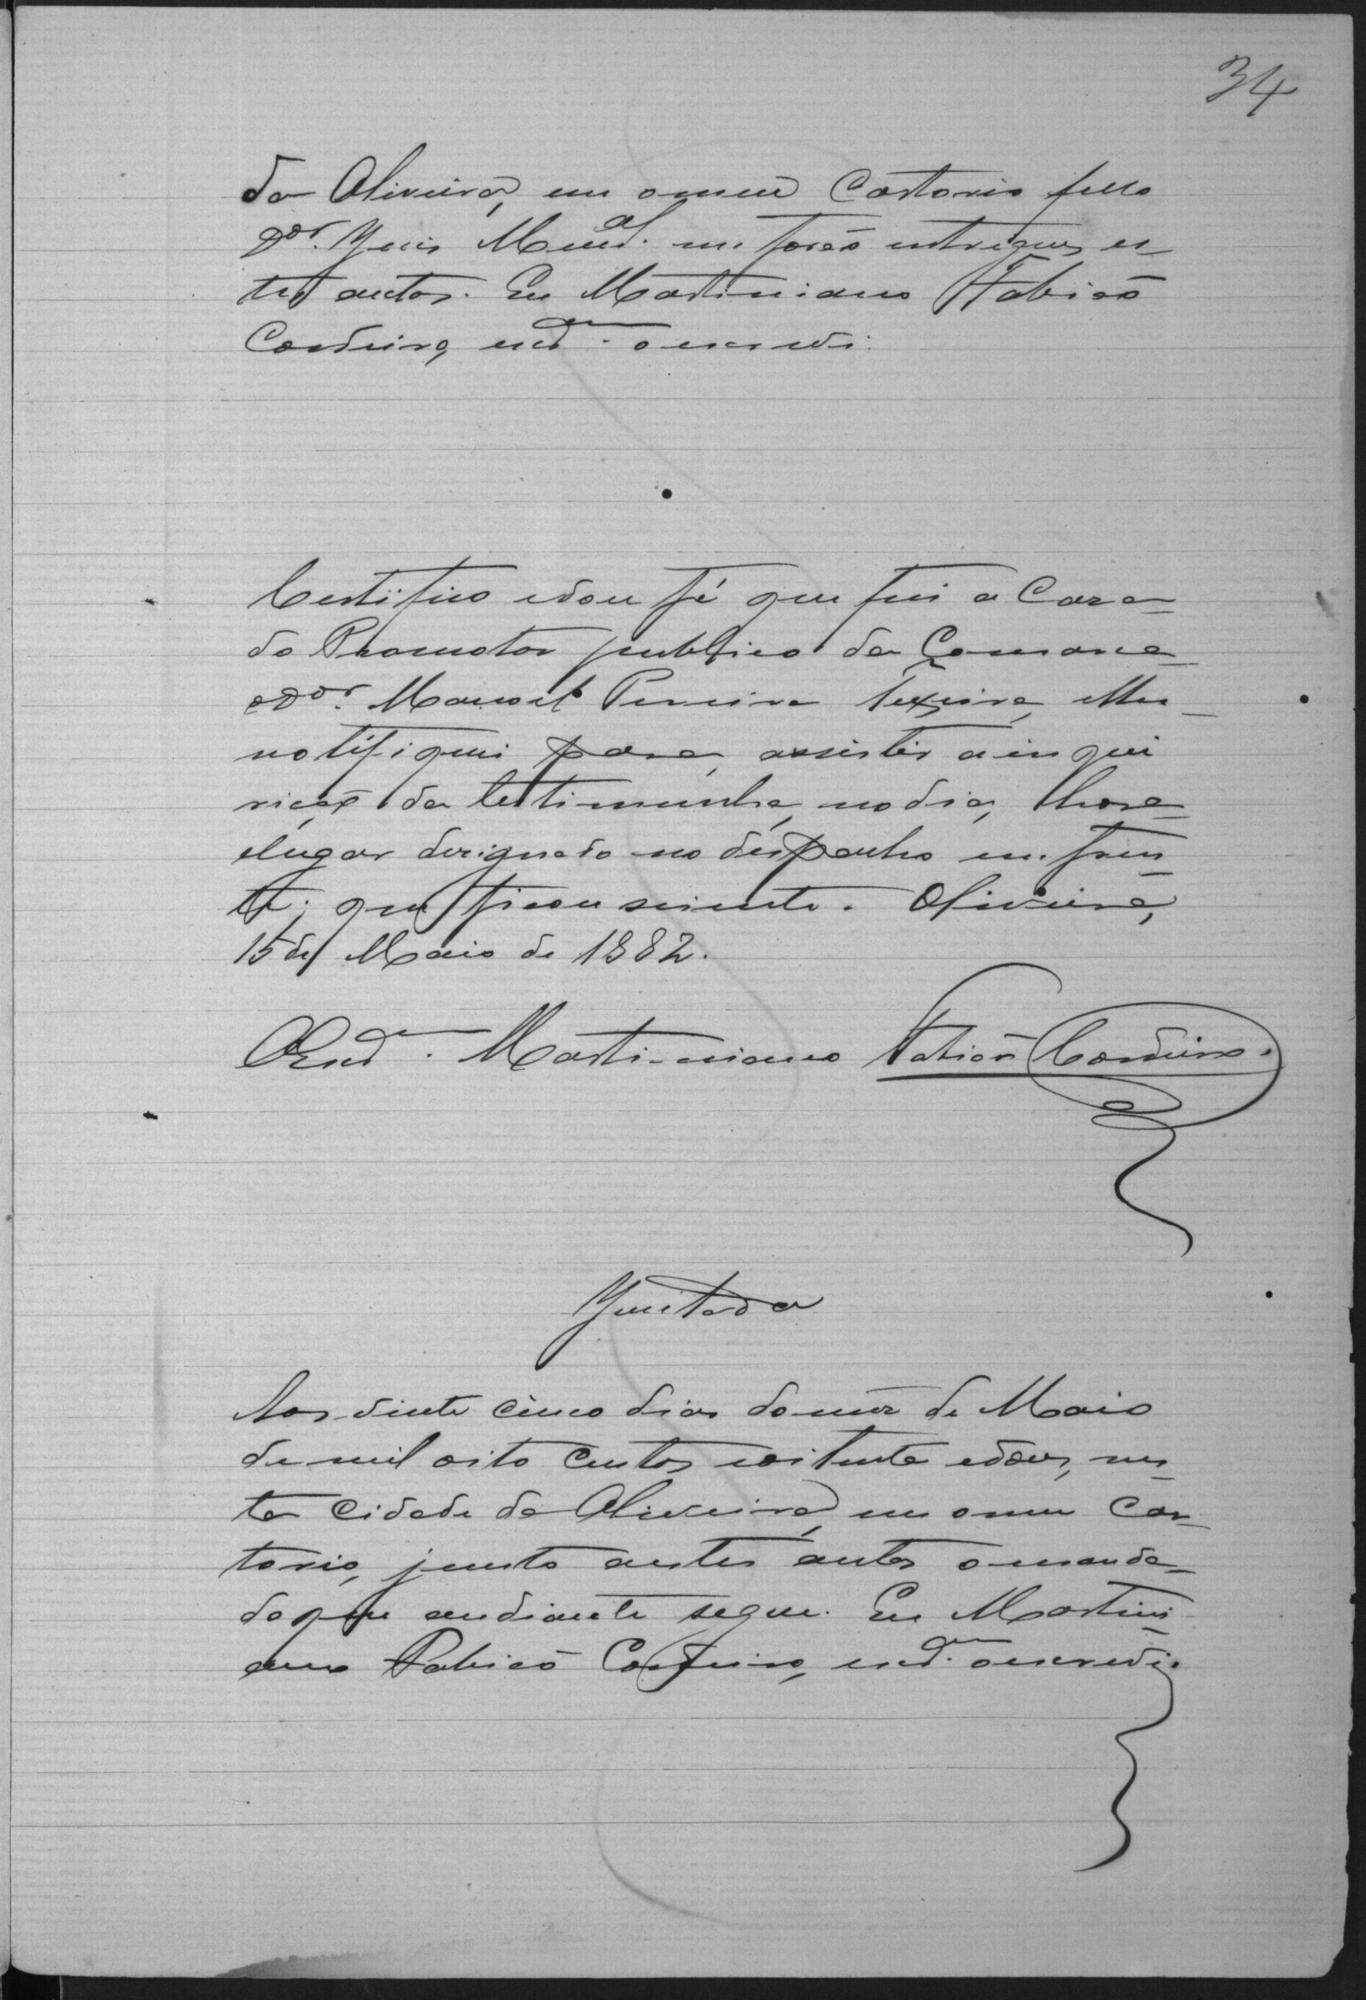 34
da Oliveira, em o meu Cartorio pello
Dor. Juis Mun.al me forão entregues es-
tes autos. Eu Martiniano Fabião
Cordeiro, escram. o escrevi.
Certifico e dou fé que fui a Caza
do Promotor publico da Comarca
o Dor. Manoel Pereira Texeira, e lhe
notifiquei para assistir a inqui
rição da testimunha, no dia, e hora
e lugar designado no despacho em fren
te; que ficou sciente. Oliveira,
15 de Maio de 1882.
O Escram. Martiniano Fabião Cordeiro.
Juntada
Aos vinte cinco dias do mês de Maio
de mil oito centos e oitenta e dous, nes
ta Cidade da Oliveira, em o meu Car-
torio, junto a estes autos o manda-
do que a diante segue. Eu Martini
ano Fabião Cordeiro, escram. o escrevi.